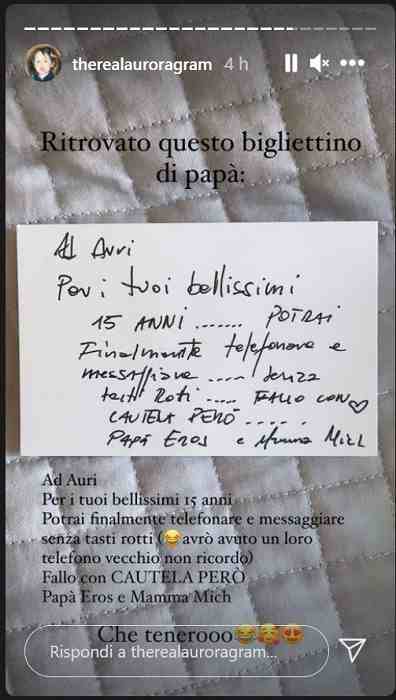 therealauroragram 4 h
Ritrovato questo bigliettino
di papà:
Ad Auri
Per i tuoi bellissimi
15 ANNI ....... POTRAI
Finalmente telefonare e
messaggiare ..... senza
tasti Roti ..... FALLO CON
CAUTELA PERÒ .....
PAPÀ EROS e Mamma Mich
Ad Auri
Per i tuoi bellissimi 15 anni
Potrai finalmente telefonare e messaggiare
senza tasti rotti (😂avrò avuto un loro
telefono vecchio non ricordo)
Fallo con CAUTELA PERÒ
Papà Eros e Mamma Mich
Che tenerooo😂🥰😍
Rispondi a therealauroragram...